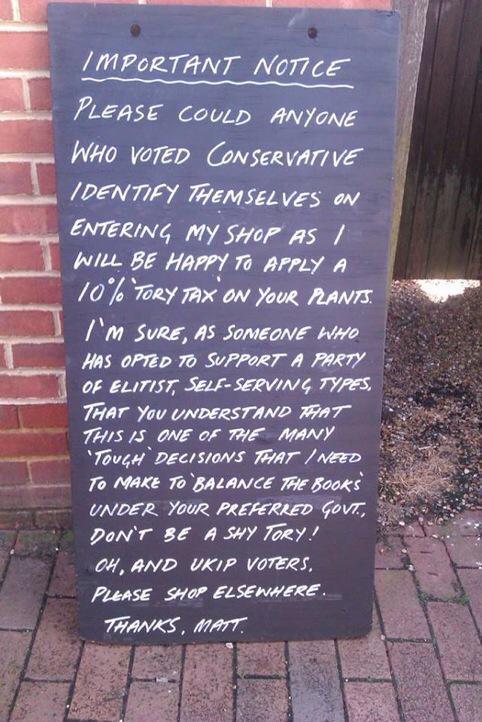 IMPORTANT NOTICE
PLEASE COULD ANYONE
WHO VOTED CONSERVATIVE
IDENTIFY THEMSELVES ON
ENTERING MY SHOP AS I
WILL BE HAPPY TO APPLY A
10% 'TORY TAX' ON YOUR PLANTS.
I'M SURE, AS SOMEONE WHO
HAS OPTED TO SUPPORT A PARTY
OF ELITIST, SELF-SERVING TYPES,
THAT YOU UNDERSTAND THAT
THIS IS ONE OF THE MANY
'TOUGH' DECISIONS THAT I NEED
TO MAKE TO 'BALANCE THE BOOKS'
UNDER YOUR PREFERRED GOVT.,
DON'T BE A SHY TORY!
OH, AND UKIP VOTERS,
PLEASE SHOP ELSEWHERE.
THANKS, MATT.